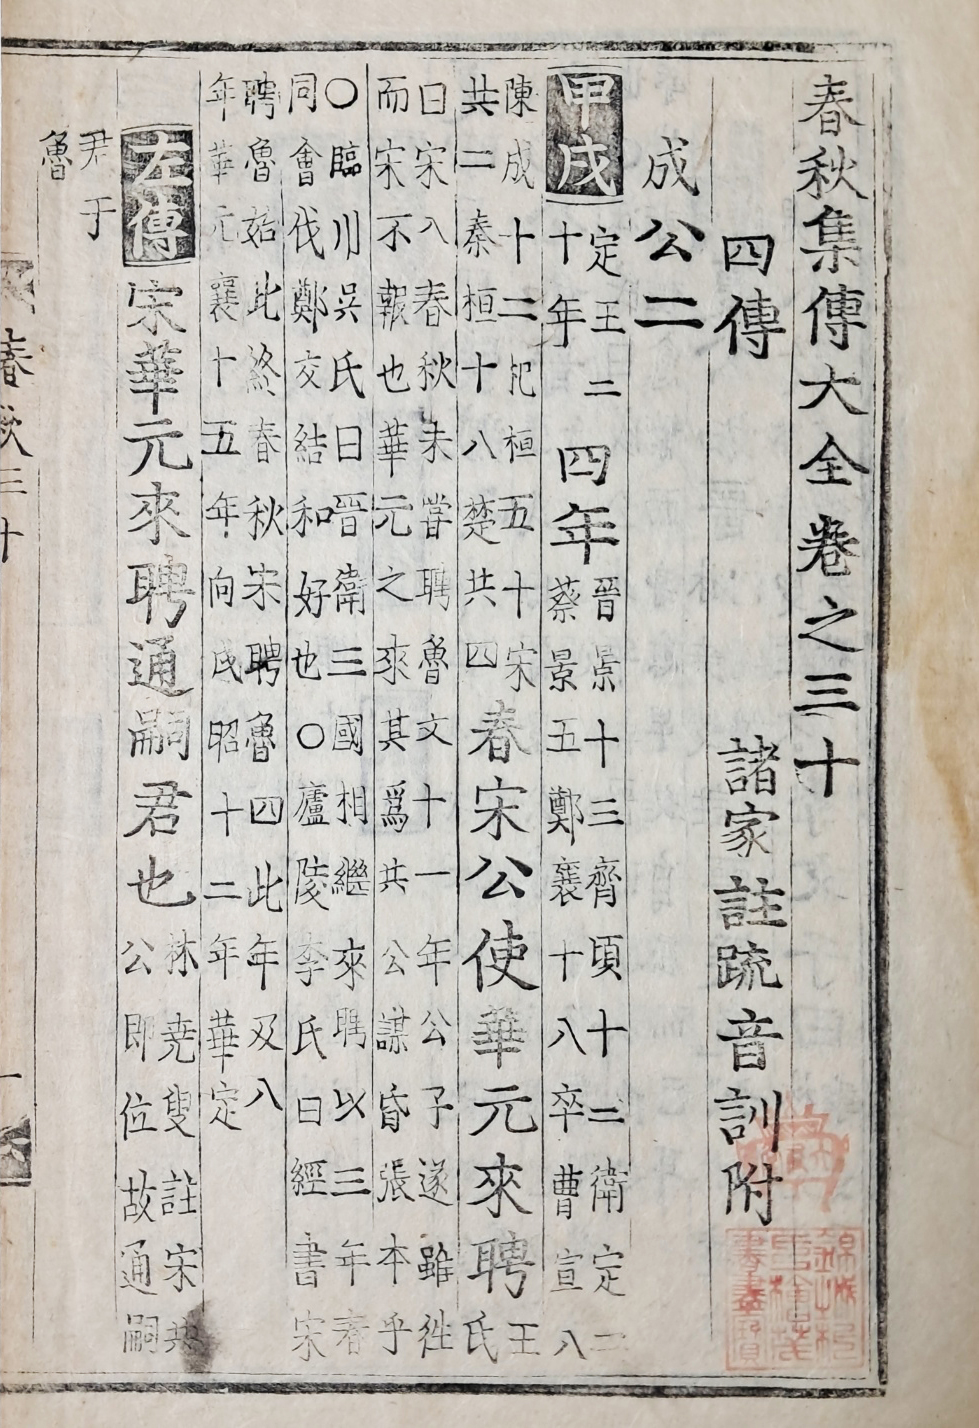 春秋集傳大全卷之三十
四傳 諸家註䟽音訓附
成公二
甲戌 定王二
十年
四年
晉景十三齊頃十二衛定二
蔡景五鄭襄十八卒曹宣八
陳成十二杞桓五十宋
共二秦桓十八楚共四
春宋公使華元來聘
王
氏
曰宋入春秋未甞聘魯文十一年公子遂雖徃
而宋不報也華元之來其爲共公謀昏張本乎
〇臨川吳氏曰晉衛三國相繼來聘以三年春
同會伐鄭交結和好也〇廬陵李氏曰經書宋
聘魯始此終春秋宋聘魯四此年及八
年華元襄十五年向戌昭十二年華定
左傳 宋華元來聘通嗣君也
林堯叟註宋共
公即位故通嗣
君于
魯
春秋三十 一